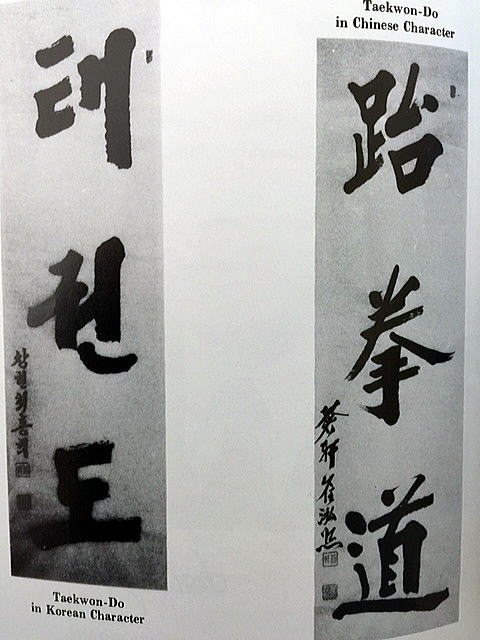 태
권
도
창헌최홍희
Taekwon-Do
in Korean Character
Taekwon-Do
in Chinese Character
跆
拳
道
蒼軒崔泓熙